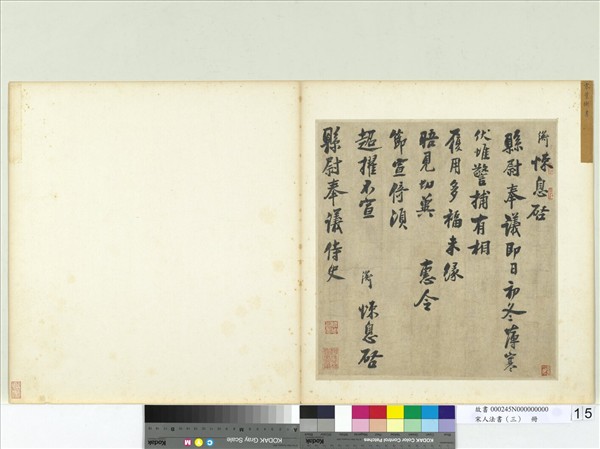 衛悚息啓
縣尉奉議即日初冬薄寒
伏惟警捕有相
履用多福未緣
晤見切冀 惠令
節宣倚須
超擢不宣
衛 悚息啓
縣尉奉議侍史
故書 000245N000000000
宋人法書（三） 冊
15
Kodak Gray Scale
KODAK Color Control Patches
Kodak